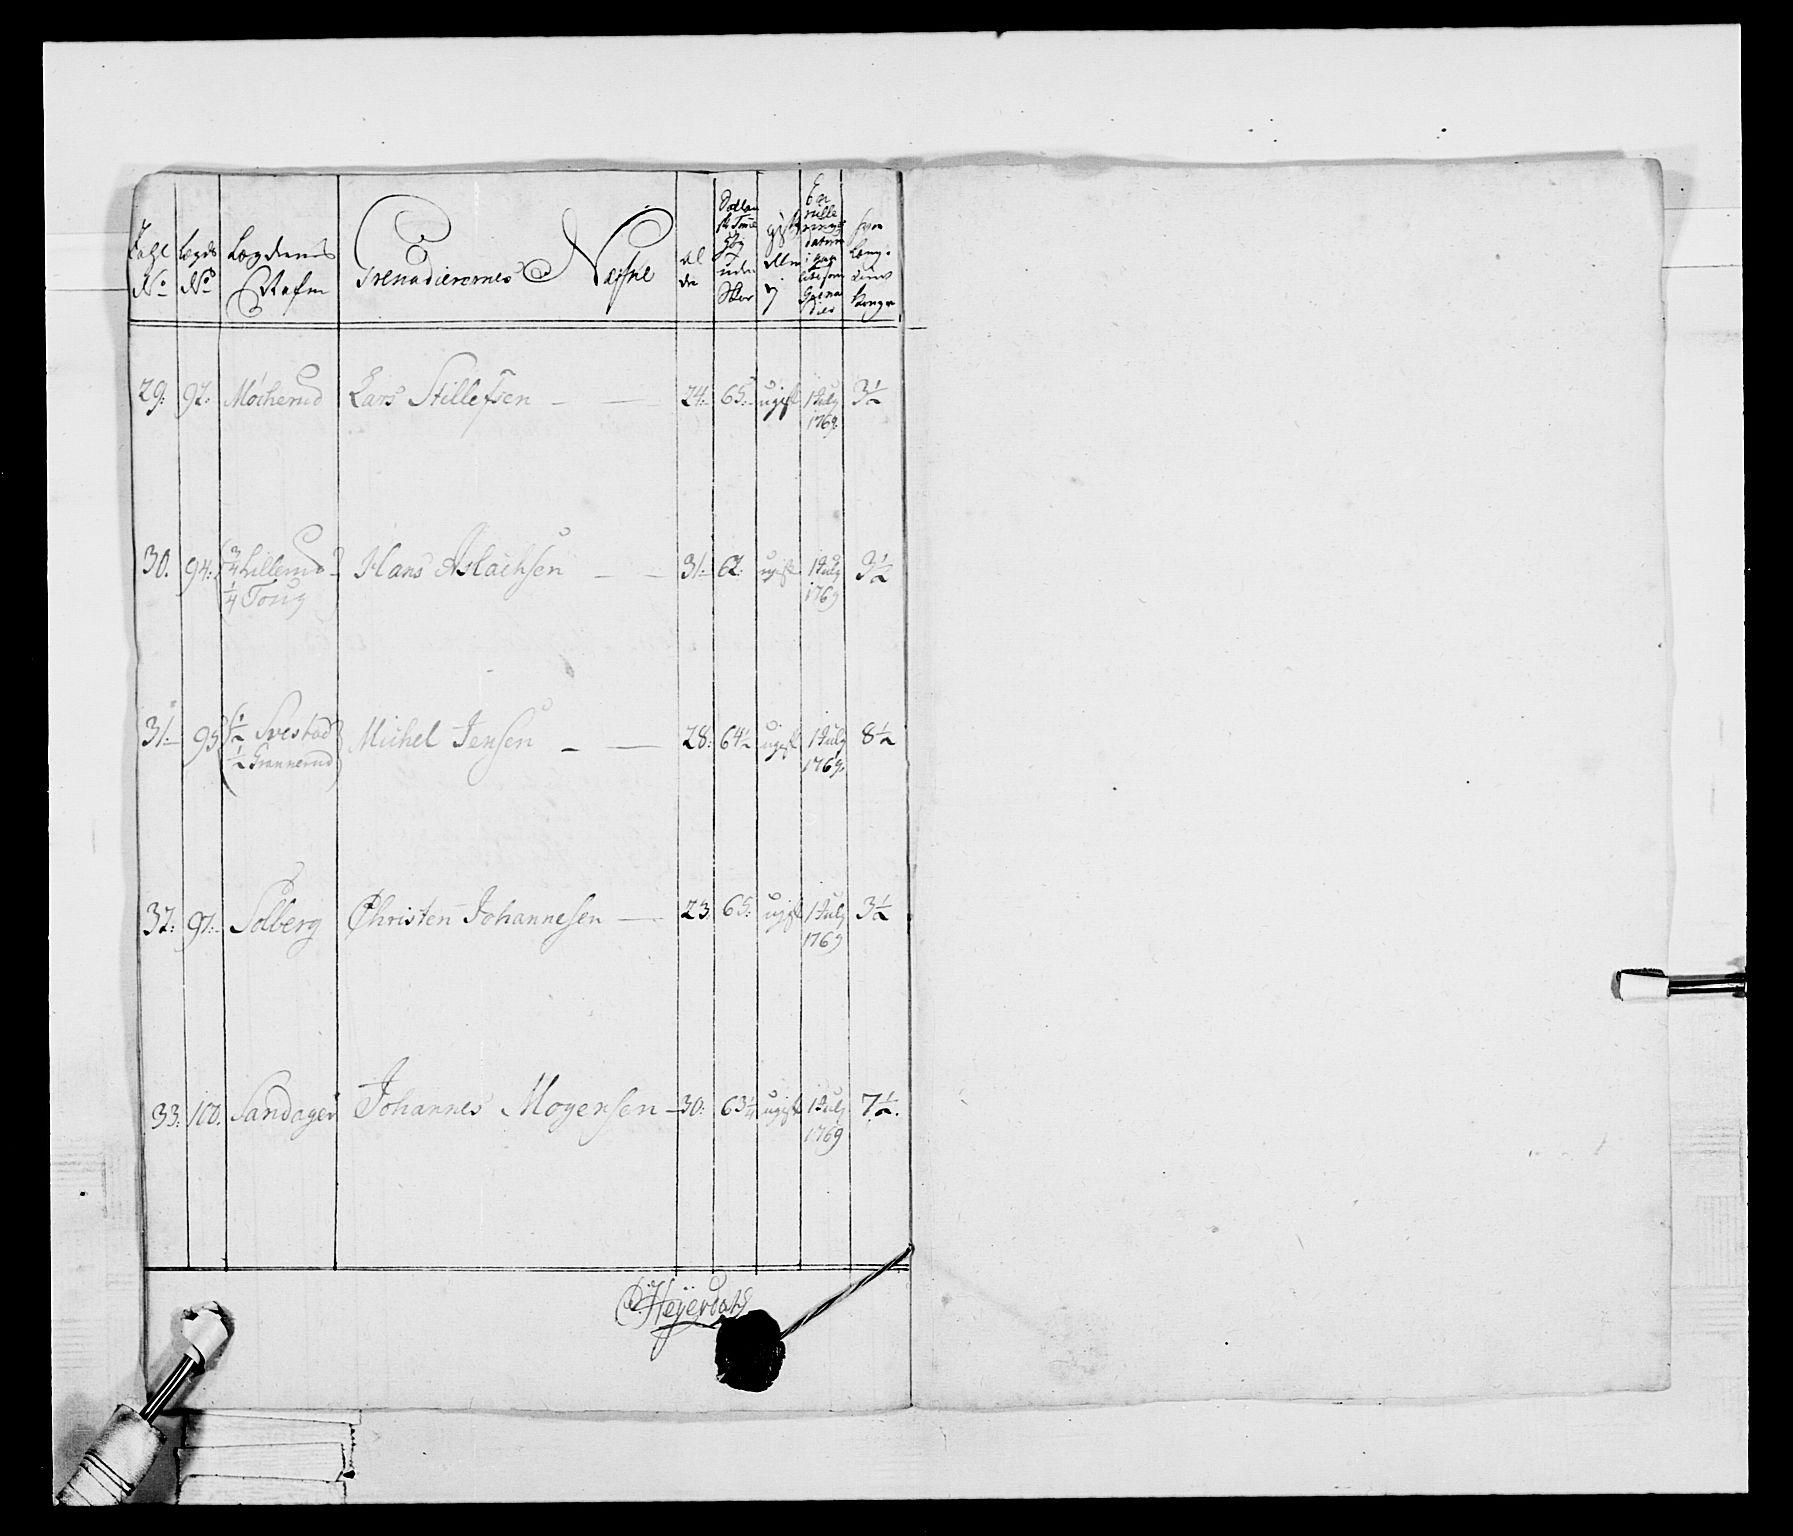 No. Lægds No. Lægdernes Nafn Grenadierernes Nafne Al der uden Skoe gift eller ej datum
29: 92. Mócherud Lars Stillefsen – — 24: 65: ugift 1 July 1769. 3½
30. 94: (¾ Lillerud ¼ Toug) Hans Aslachsen – — 31: 62: ugift 1 July 1769 3½
31– 95 (½ Svestad ½ Grannerud) Michel Jensen – — 28: 64½ ugift 1 July 1769. 8½
32: 97: Solberg Christen Johannesen — 23: 65: ugift 1 July 1769 3½
33: 100. Sandager Johannes Mogensen – 30: 63¼ ugift 1 July 1769 7½.
Heÿerdahl